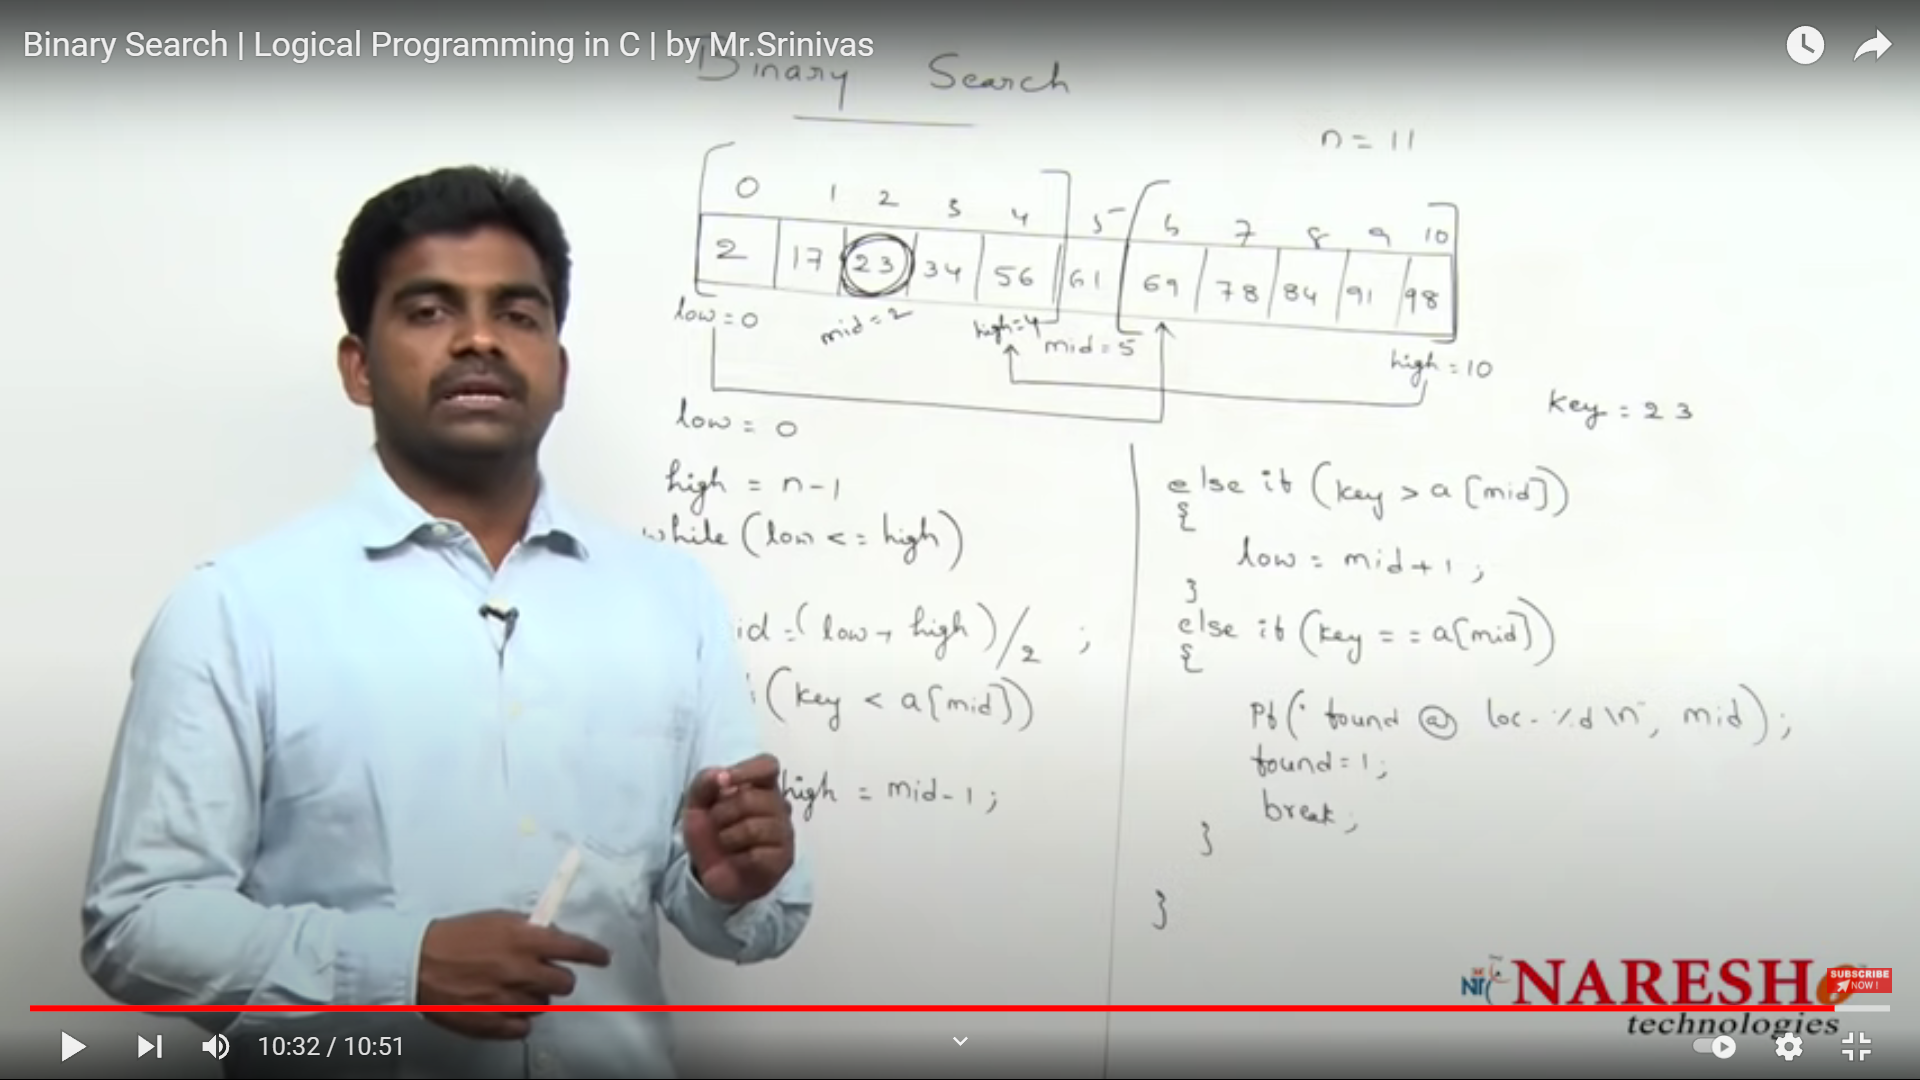 Binary Search | Logical Programming in C | by Mr.Srinivas
Binary Search
n = 11
0 1 2 3 4 5 6 7 8 9 10
2 17 23 34 56 61 69 78 84 91 98
low = 0 mid = 2 high = 4 mid = 5 high = 10
key = 23
low = 0
high = n-1
while (low <= high)
id = (low + high)/2 ;
(key < a[mid])
high = mid-1;
else if (key > a[mid])
{
low = mid+1;
}
else if (key == a[mid])
{
Pf(" found @ loc- %d\n", mid);
found=1;
break;
}
}
NARESH
technologies
SUBSCRIBE
NOW !
10:32 / 10:51